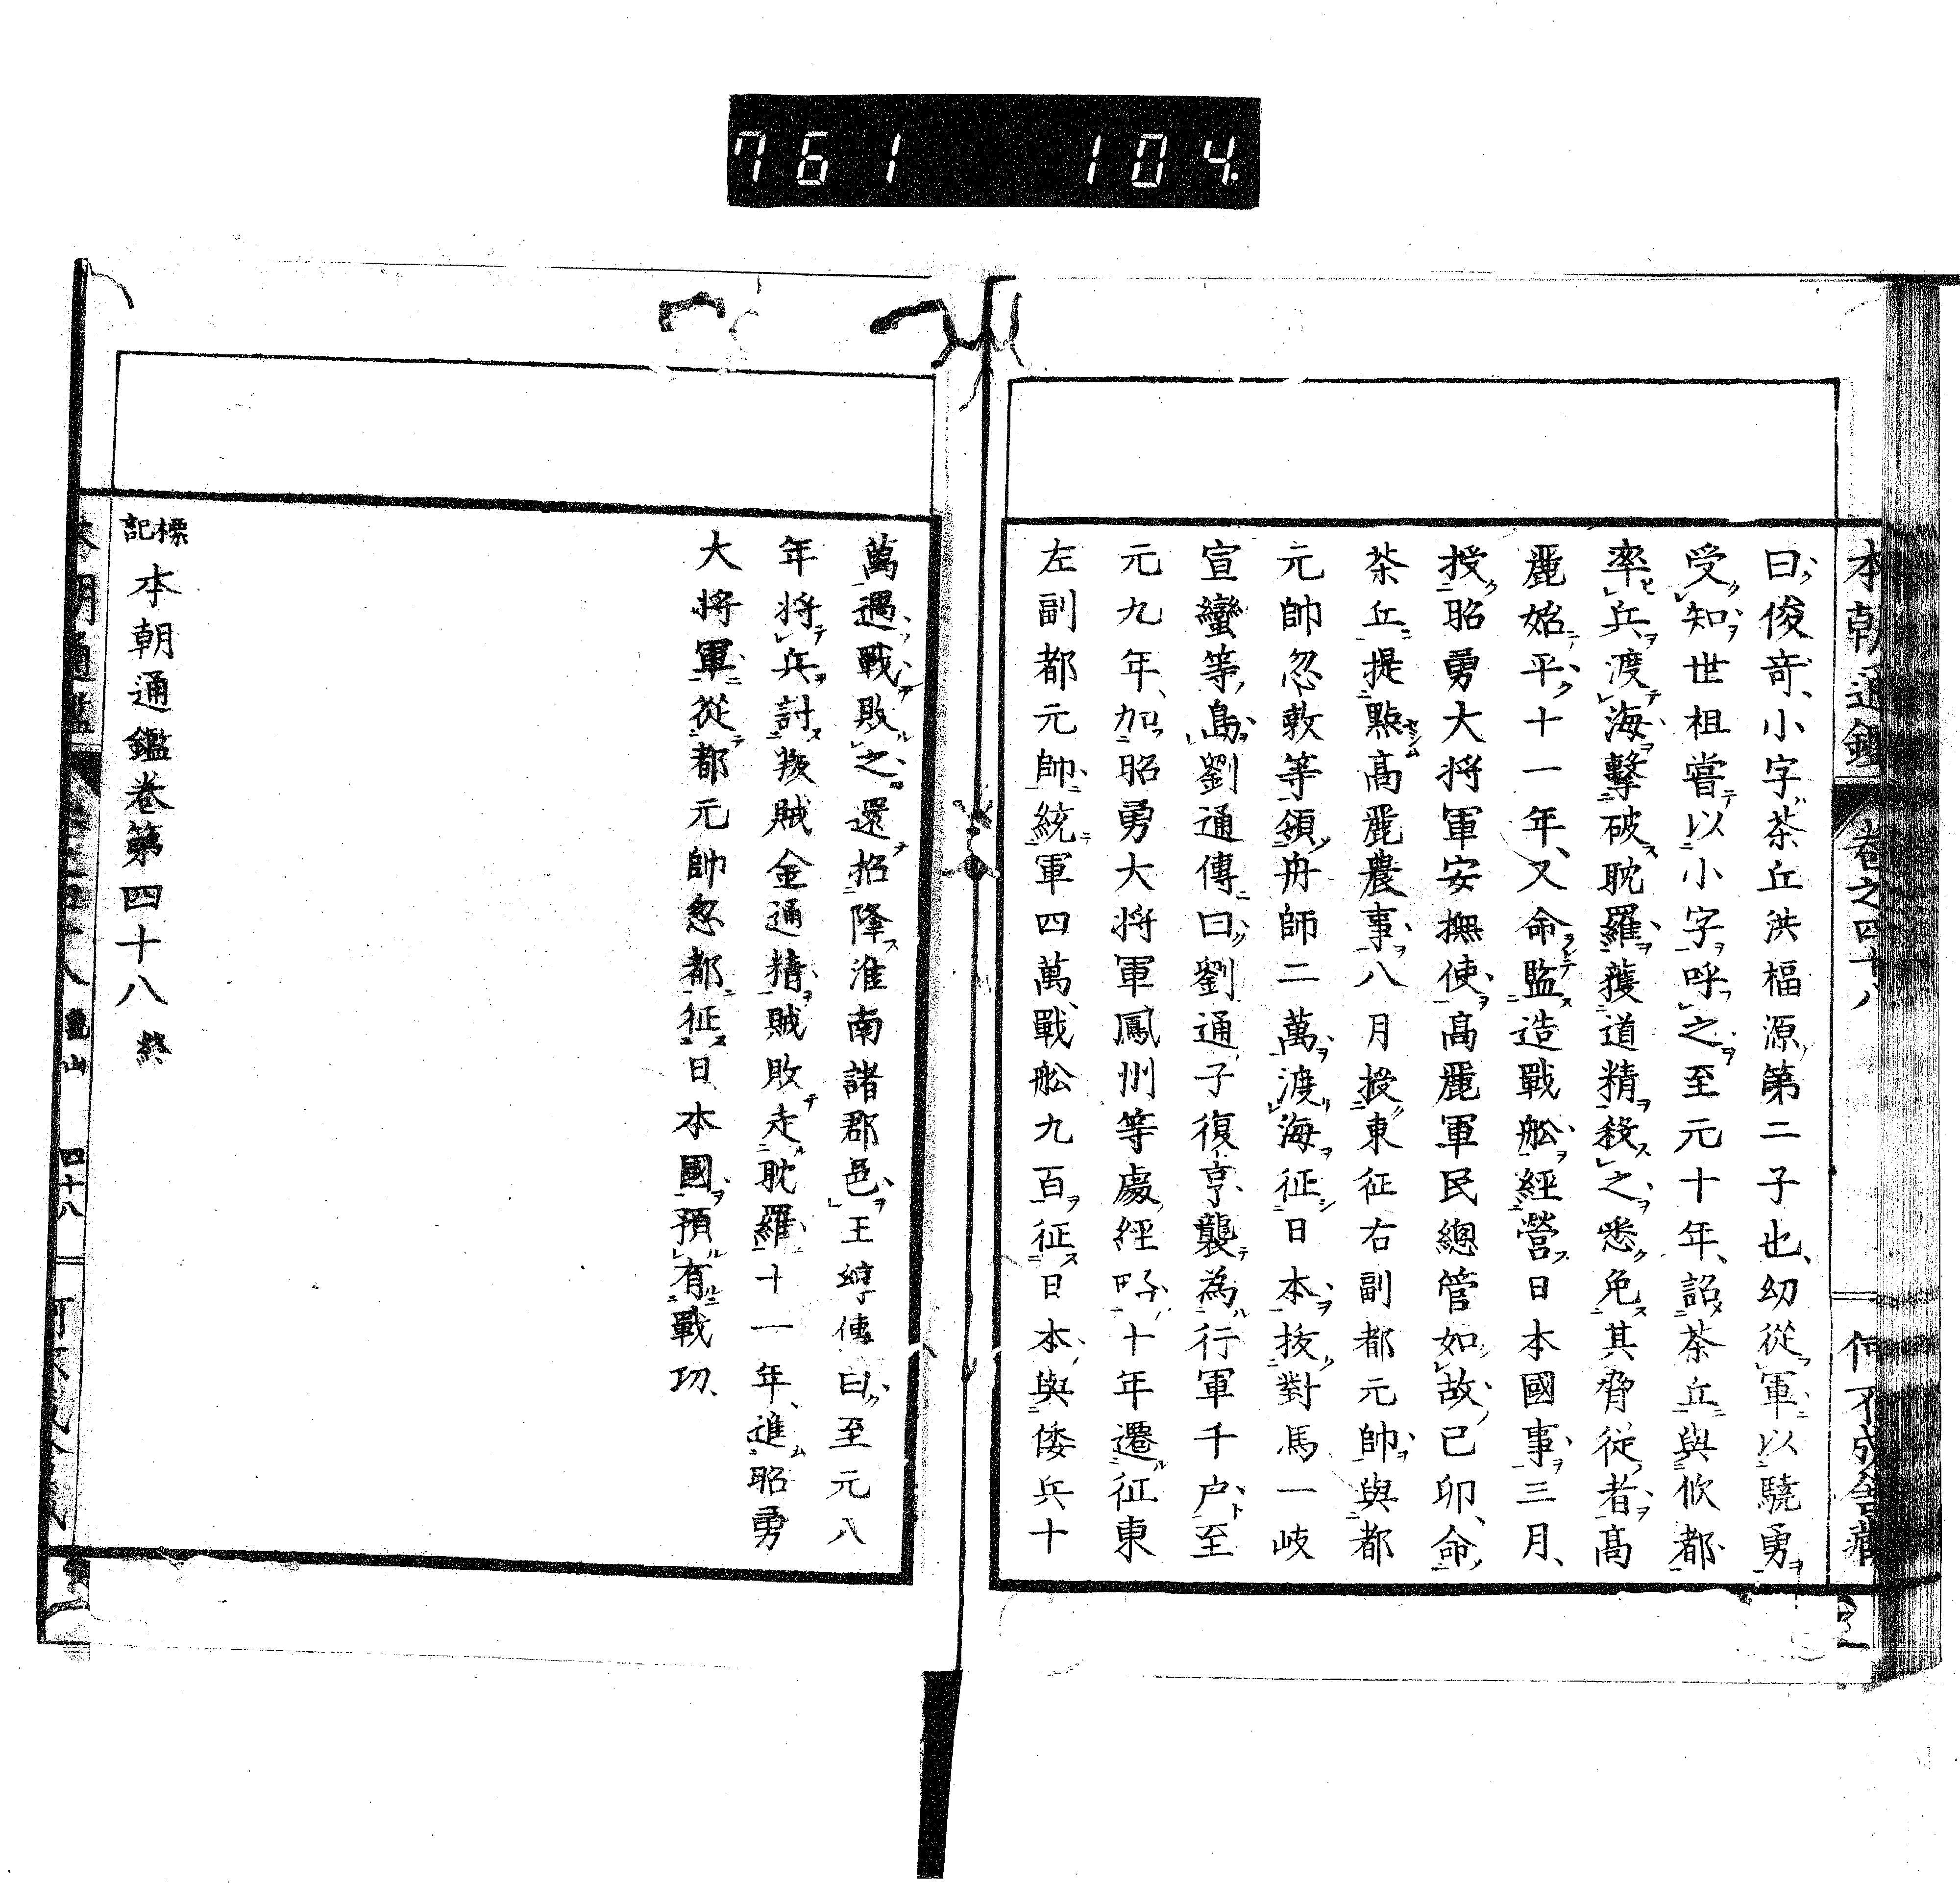 761 104.
本朝通鑑 卷之四十八 何不成舎藏
曰俊奇、小字茶丘洪福源第二子也、幼從軍以驍勇
受知世祖嘗以小字呼之至元十年、詔茶丘與忻都
率兵渡海擊破耽羅獲道精殺之悉免其脅從者高
麗始平十一年、又命監造戰舩經營日本國事三月、
授昭勇大将軍安撫使高麗軍民總管如故己卯、命
茶丘提點高麗農事八月授東征右副都元帥與都
元帥忽敦等領舟師二萬渡海征日本抜對馬一岐
宣蠻等島劉通傳曰劉通子復亨襲為行軍千户至
元九年、加昭勇大将軍鳳州等處經畧十年遷征東
左副都元帥統軍四萬、戰舩九百征日本與倭兵十
萬遇戰敗之還招降淮南諸郡邑王綧傳曰至元八
年将兵討叛賊金通精賊敗走耽羅十一年、進昭勇
大将軍從都元帥忽都征日本國預有戰功、
標記 本朝通鑑巻第四十八 終
本朝通鑑 龜山 四十八